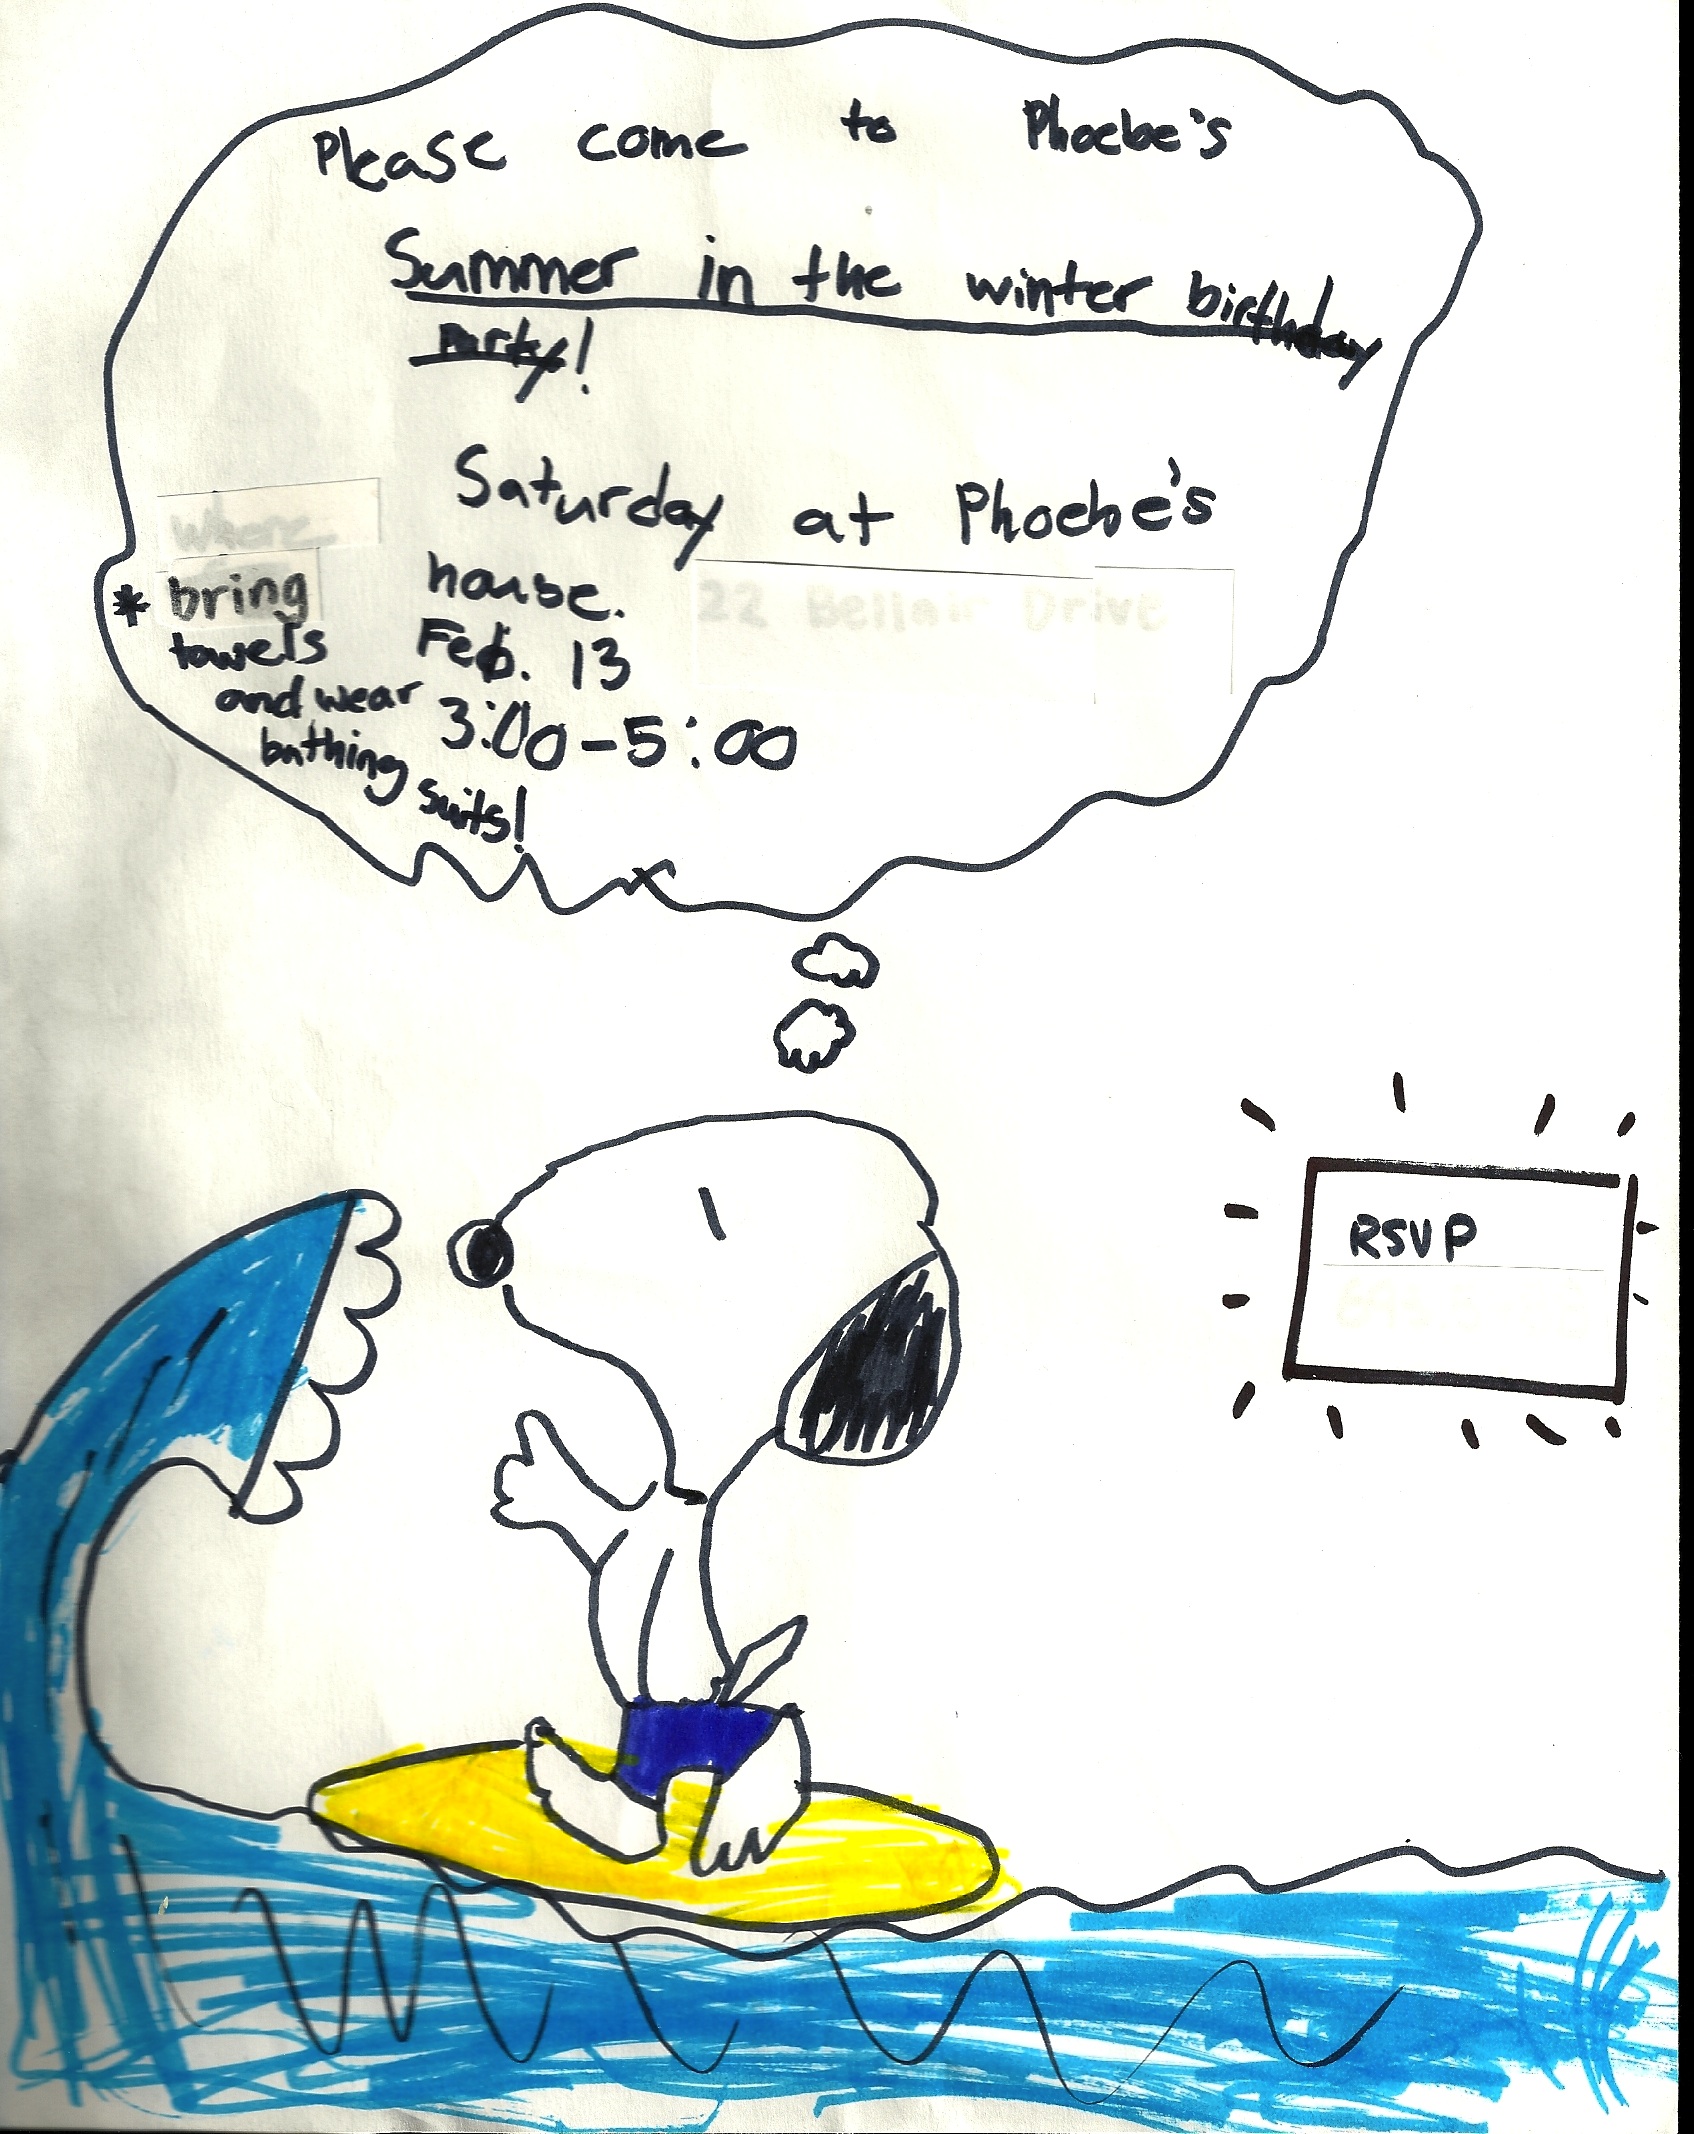 Please come to Phoebe's
Summer in the winter birthday
Party!
Saturday at Phoebe's
where
house.
22 Bellair Drive
Feb. 13
3:00-5:00
* bring
towels
and wear
bathing
suits!
RSVP